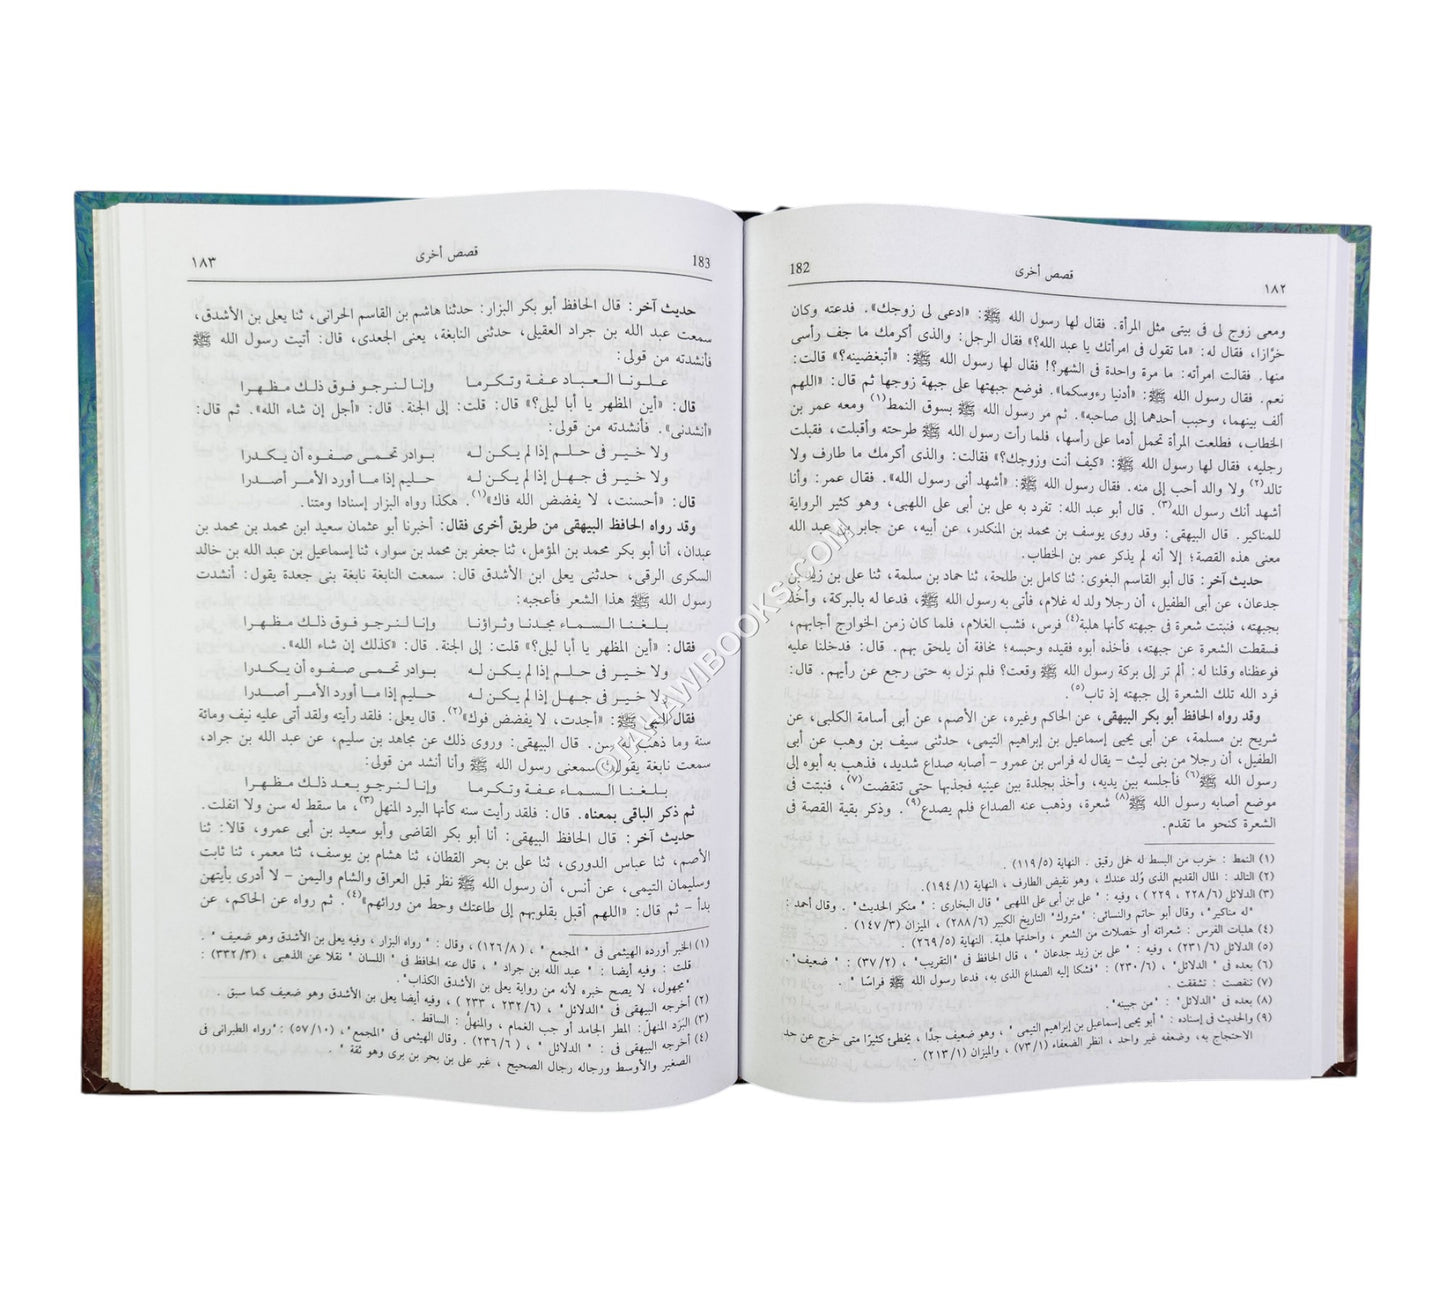 182
قصص أخرى
١٨٢
ومعى زوج لى فى بيتى مثل المرأة. فقال لها رسول الله ﷺ: «ادعى لى زوجك». فدعته وكان
خرَّازا، فقال له: «ما تقول فى امرأتك يا عبد الله؟» فقال الرجل: والذى أكرمك ما جف رأسى
منها. فقالت امرأته: ما مرة واحدة فى الشهر؟! فقال لها رسول الله ﷺ: «أتبغضينه؟» قالت:
نعم. فقال رسول الله ﷺ: «أدنيا رءوسكما». فوضع جبهتها على جبهة زوجها ثم قال: «اللهم
ألف بينهما، وحبب أحدهما إلى صاحبه». ثم مر رسول الله ﷺ بسوق النمط(١) ومعه عمر بن
الخطاب، فطلعت المرأة تحمل أدما على رأسها، فلما رأت رسول الله ﷺ طرحته وأقبلت، فقبلت
رجليه، فقال لها رسول الله ﷺ: «كيف أنت وزوجك؟» فقالت: والذى أكرمك ما طارف ولا
تالد(٢) ولا والد أحب إلى منه. فقال رسول الله ﷺ: «أشهد أنى رسول الله». فقال عمر: وأنا
أشهد أنك رسول الله(٣). قال أبو عبد الله: تفرد به على بن أبى على اللهبى، وهو كثير الرواية
للمناكير. قال البيهقى: وقد روى يوسف بن محمد بن المنكدر، عن أبيه، عن جابر بن عبد الله
معنى هذه القصة؛ إلا أنه لم يذكر عمر بن الخطاب.
حديث آخر: قال أبو القاسم البغوى: ثنا كامل بن طلحة، ثنا حماد بن سلمة، ثنا على بن زيد بن
جدعان، عن أبى الطفيل، أن رجلا ولد له غلام، فأتى به رسول الله ﷺ، فدعا له بالبركة، وأخذ
بجبهته، فنبتت شعرة فى جبهته كأنها هلبة(٤) فرس، فشب الغلام، فلما كان زمن الخوارج أجابهم،
فسقطت الشعرة عن جبهته، فأخذه أبوه فقيده وحبسه؛ مخافة أن يلحق بهم. قال: فدخلنا عليه
فوعظناه وقلنا له: ألم تر إلى بركة رسول الله ﷺ وقعت؟ فلم نزل به حتى رجع عن رأيهم. قال:
فرد الله تلك الشعرة إلى جبهته إذ تاب(٥).
وقد رواه الحافظ أبو بكر البيهقى، عن الحاكم وغيره، عن الأصم، عن أبى أسامة الكلبى، عن
شريح بن مسلمة، عن أبى يحيى إسماعيل بن إبراهيم التيمى، حدثنى سيف بن وهب عن أبى
الطفيل، أن رجلا من بنى ليث – يقال له فراس بن عمرو – أصابه صداع شديد، فذهب به أبوه إلى
رسول الله ﷺ(٦) فأجلسه بين يديه، وأخذ بجلدة بين عينيه فجذبها حتى تنقضت(٧)، فنبتت فى
موضع أصابه رسول الله ﷺ(٨) شعرة، وذهب عنه الصداع فلم يصدع(٩). وذكر بقية القصة فى
الشعرة كنحو ما تقدم.
(١) النمط : ضرب من البسط له خمل رقيق . النهاية (١١٩/٥) .
(٢) التالد : المال القديم الذى وُلد عندك ، وهو نقيض الطارف ، النهاية (١٩٤/١) .
(٣) الدلائل (٢٢٨/٦ ، ٢٢٩ ) ، وفيه : " على بن أبى على الملهبى " قال البخارى : " منكر الحديث" . وقال أحمد :
"له مناكير" ، وقال أبو حاتم والنسائى: "متروك" التاريخ الكبير (٢٨٨/٦) ، الميزان (١٤٧/٣) .
(٤) هلبات الفرس : شعراته أو خصلات من الشعر ، واحدتها هلبة. النهاية (٢٦٩/٥) .
(٥) الدلائل (٢٣١/٦) ، وفيه : " على بن زيد جدعان ، قال الحافظ فى "التقريب" ، (٣٧/٢) : " ضعيف" .
(٦) بعده فى "الدلائل" ، (٢٣٠/٦) : "فشكا إليه الصداع الذى به، فدعا رسول الله ﷺ فراسًا " .
(٧) تنقصت : تشققت .
(٨) بعده فى "الدلائل" : "من جبينه".
(٩) والحديث فى إسناده : " أبو يحيى إسماعيل بن إبراهيم التيمى" ، وهو ضعيف جدًّا ، يخطئ كثيرًا متى خرج عن حد
الاحتجاج به، وضعفه غير واحد ، انظر الضعفاء (٧٣/١) ، والميزان (٢١٣/١) .
183
قصص أخرى
١٨٣
حديث آخر: قال الحافظ أبو بكر البزار: حدثنا هاشم بن القاسم الحرانى، ثنا يعلى بن الأشدق،
سمعت عبد الله بن جراد العقيلى، حدثنى النابغة، يعنى الجعدى، قال: أتيت رسول الله ﷺ
فأنشدته من قولى:
علونا العباد عفة وتكرما وإنا لنرجو فوق ذلك مظهرا
قال: «أين المظهر يا أبا ليلى؟» قال: قلت: إلى الجنة. قال: «أجل إن شاء الله». ثم قال:
«أنشدنى». فأنشدته من قولى:
ولا خير فى حلم إذا لم يكن له بوادر تحمى صفوه أن يكدرا
ولا خير فى جهل إذا لم يكن له حليم إذا ما أورد الأمر أصدرا
قال: «أحسنت، لا يفضض الله فاك»(١). هكذا رواه البزار إسنادا ومتنا.
وقد رواه الحافظ البيهقى من طريق أخرى فقال: أخبرنا أبو عثمان سعيد ابن محمد بن محمد بن
عبدان، أنا أبو بكر محمد بن المؤمل، ثنا جعفر بن محمد بن سوار، ثنا إسماعيل بن عبد الله بن خالد
السكرى الرقى، حدثنى يعلى ابن الأشدق قال: سمعت النابغة نابغة بنى جعدة يقول: أنشدت
رسول الله ﷺ هذا الشعر فأعجبه:
بلغنا السماء مجدنا وثراؤنا وإنا لنرجو فوق ذلك مظهرا
فقال: «أين المظهر يا أبا ليلى؟» قلت: إلى الجنة. قال: «كذلك إن شاء الله».
ولا خير فى حلم إذا لم يكن له بوادر تحمى صفوه أن يكدرا
ولا خير فى جهل إذا لم يكن له حليم إذا ما أورد الأمر أصدرا
فقال النبى ﷺ: «أجدت، لا يفضض فوك»(٢). قال يعلى: فلقد رأيته ولقد أتى عليه نيف ومائة
سنة وما ذهب له سن. قال البيهقى: وروى ذلك عن مجاهد بن سليم، عن عبد الله بن جراد،
سمعت نابغة يقول: سمعنى رسول الله ﷺ وأنا أنشد من قولى:
بلغنا السماء عفة وتكرما وإنا لنرجو بعد ذلك مظهرا
ثم ذكر الباقى بمعناه. قال: فلقد رأيت سنه كأنها البرد المنهل(٣)، ما سقط له سن ولا انفلت.
حديث آخر: قال الحافظ البيهقى: أنا أبو بكر القاضى وأبو سعيد بن أبى عمرو، قالا: ثنا
الأصم، ثنا عباس الدورى، ثنا على بن بحر القطان، ثنا هشام بن يوسف، ثنا معمر، ثنا ثابت
وسليمان التيمى، عن أنس، أن رسول الله ﷺ نظر قبل العراق والشام واليمن – لا أدرى بأيتهن
بدأ – ثم قال: «اللهم أقبل بقلوبهم إلى طاعتك وحط من ورائهم»(٤). ثم رواه عن الحاكم، عن
(١) الخبر أورده الهيثمى فى " المجمع " ، (١٢٦/٨) ، وقال : " رواه البزار ، وفيه يعلى بن الأشدق وهو ضعيف " .
قلت : وفيه أيضا : " عبد الله بن جراد " ، قال عنه الحافظ فى " اللسان " نقلا عن الذهبى ، (٣٣٢/٣) :
"مجهول، لا يصح خبره لأنه من رواية يعلى بن الأشدق الكذاب".
(٢) أخرجه البيهقى فى "الدلائل" ، (٢٣٢/٦ ، ٢٣٣ ) ، وفيه أيضا يعلى بن الأشدق وهو ضعيف كما سبق .
(٣) البَرَد المنهلّ: المطر الجامد أو حب الغمام ، والمنهلّ: الساقط .
(٤) أخرجه البيهقى فى : " الدلائل " ، ( ٢٣٦/٦) . وقال الهيثمى فى "المجمع"، (٥٧/١٠) : "رواه الطبرانى فى
الصغير والأوسط ورجاله رجال الصحيح ، غير على بن بحر بن برى وهو ثقة " .
©JANAWIBOOKS.COM